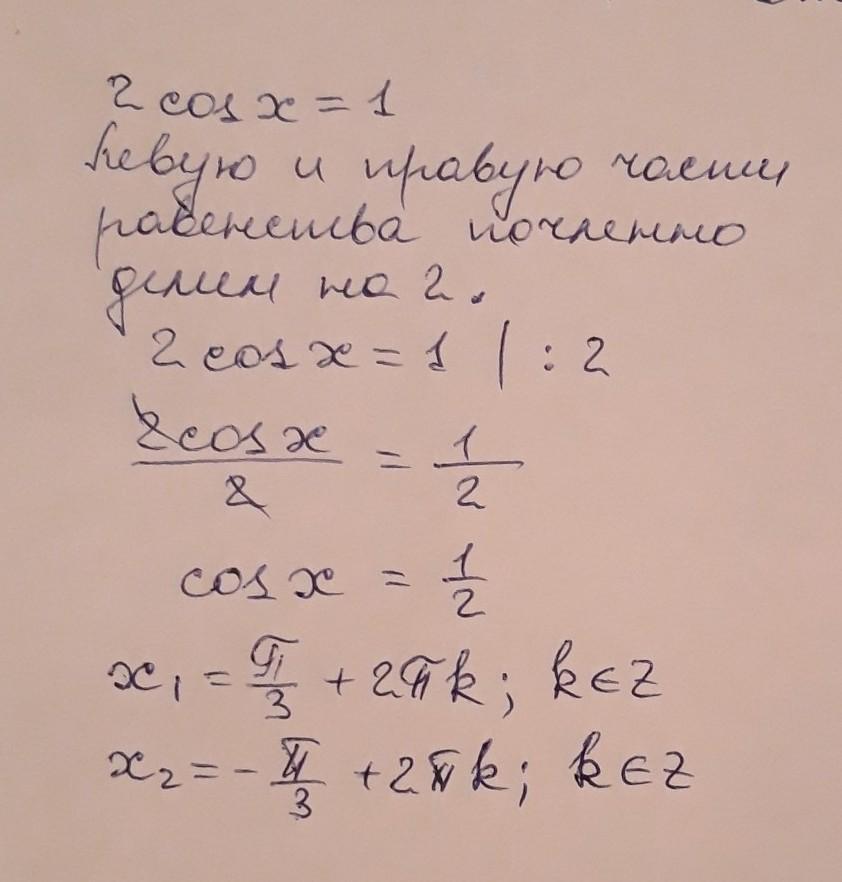 2 cos x = 1
Левую и правую части
равенства почленно
делим на 2.
2 cos x = 1 | : 2
2cos x / 2 = 1 / 2
cos x = 1/2
x₁ = π/3 + 2πk; k ∈ Z
x₂ = - π/3 + 2πk; k ∈ Z